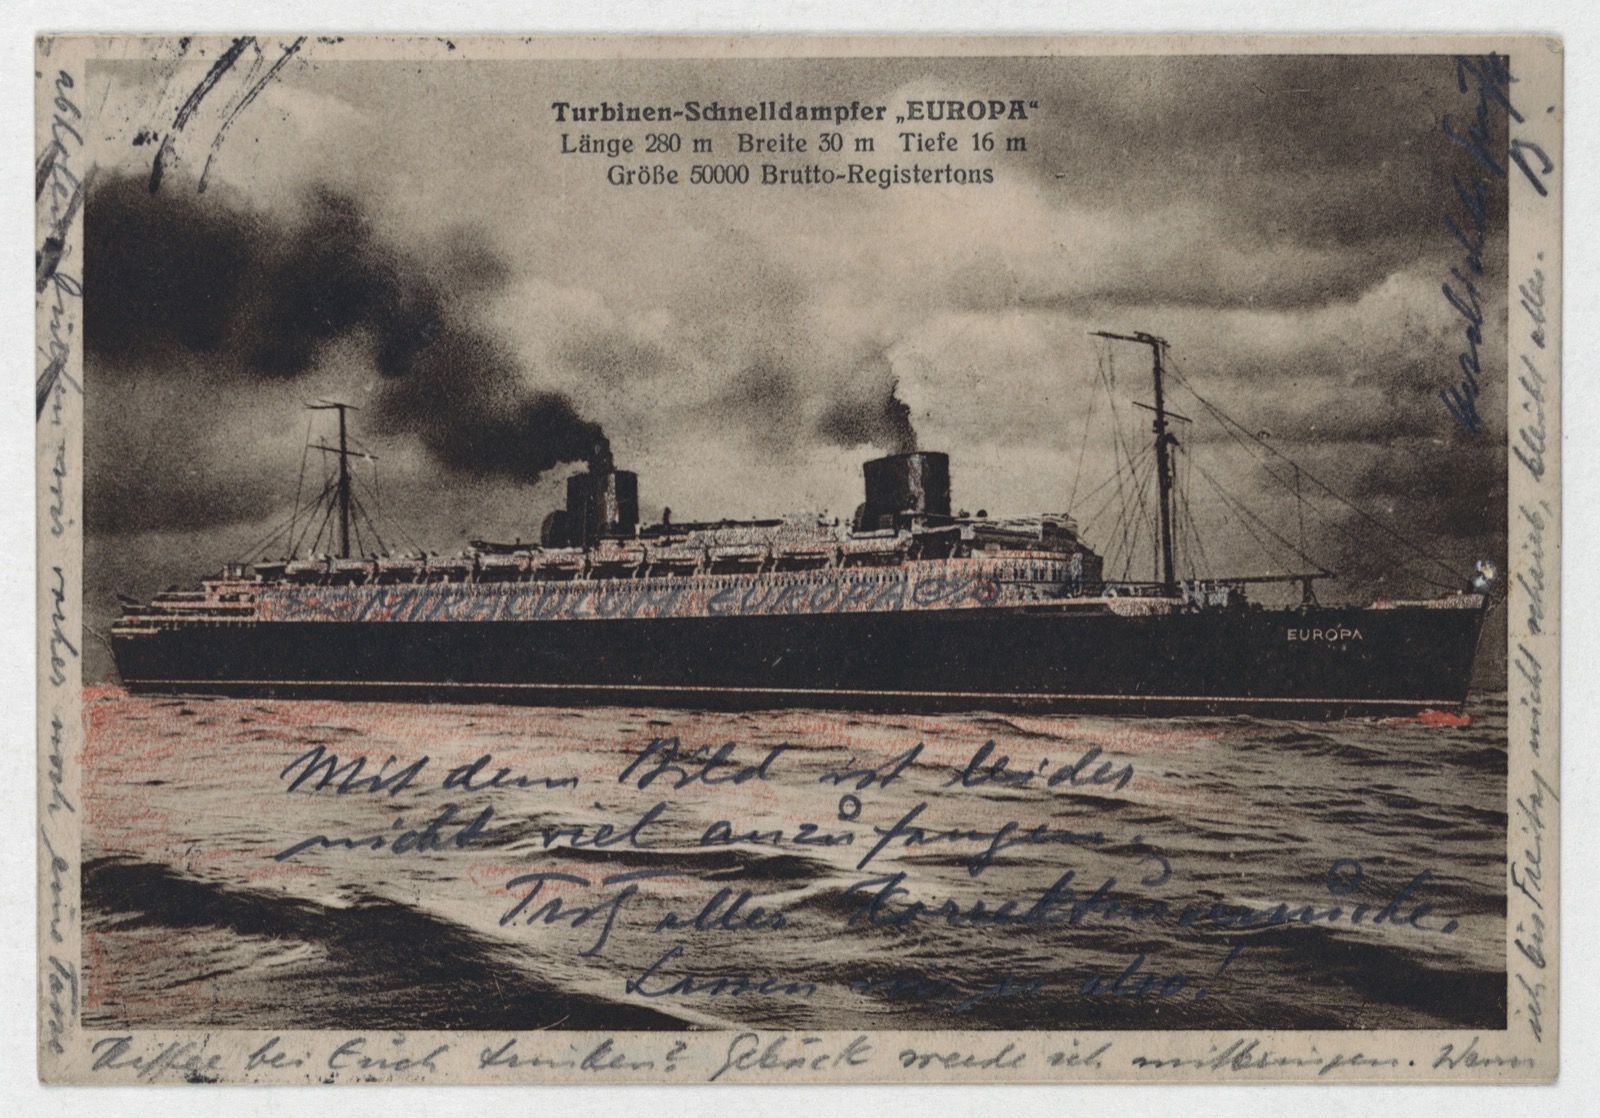 Turbinen-Schnelldampfer „EUROPA“
Länge 280 m Breite 30 m Tiefe 16 m
Größe 50000 Brutto-Registertons
MIRACULUM EUROPA
EUROPA
Mit dem Bild ist leider
nicht viel anzufangen.
Trotz aller
Lassen wir es also!
abholen? Dürfen wir vorher noch eine Tasse
Kaffee bei Euch trinken? Gebäck werde ich mitbringen. Wenn
ich bis Freitag nicht schreib, bleibt alles.
B.